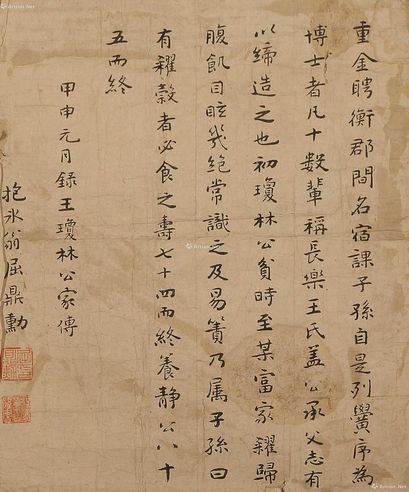 重金聘衡郡間名宿課子孫自是列黌序為
博士者凡十數輩稱長樂王氏蓋公承父志有
以締造之也初瓊林公貧時至某富家糴歸
腹飢目眩幾絕常識之及易簀乃属子孫曰
有糴穀者必食之壽七十四而終養静公八十
五而終
甲申元月録王瓊林公家傳
抱冰翁屈鼎勳